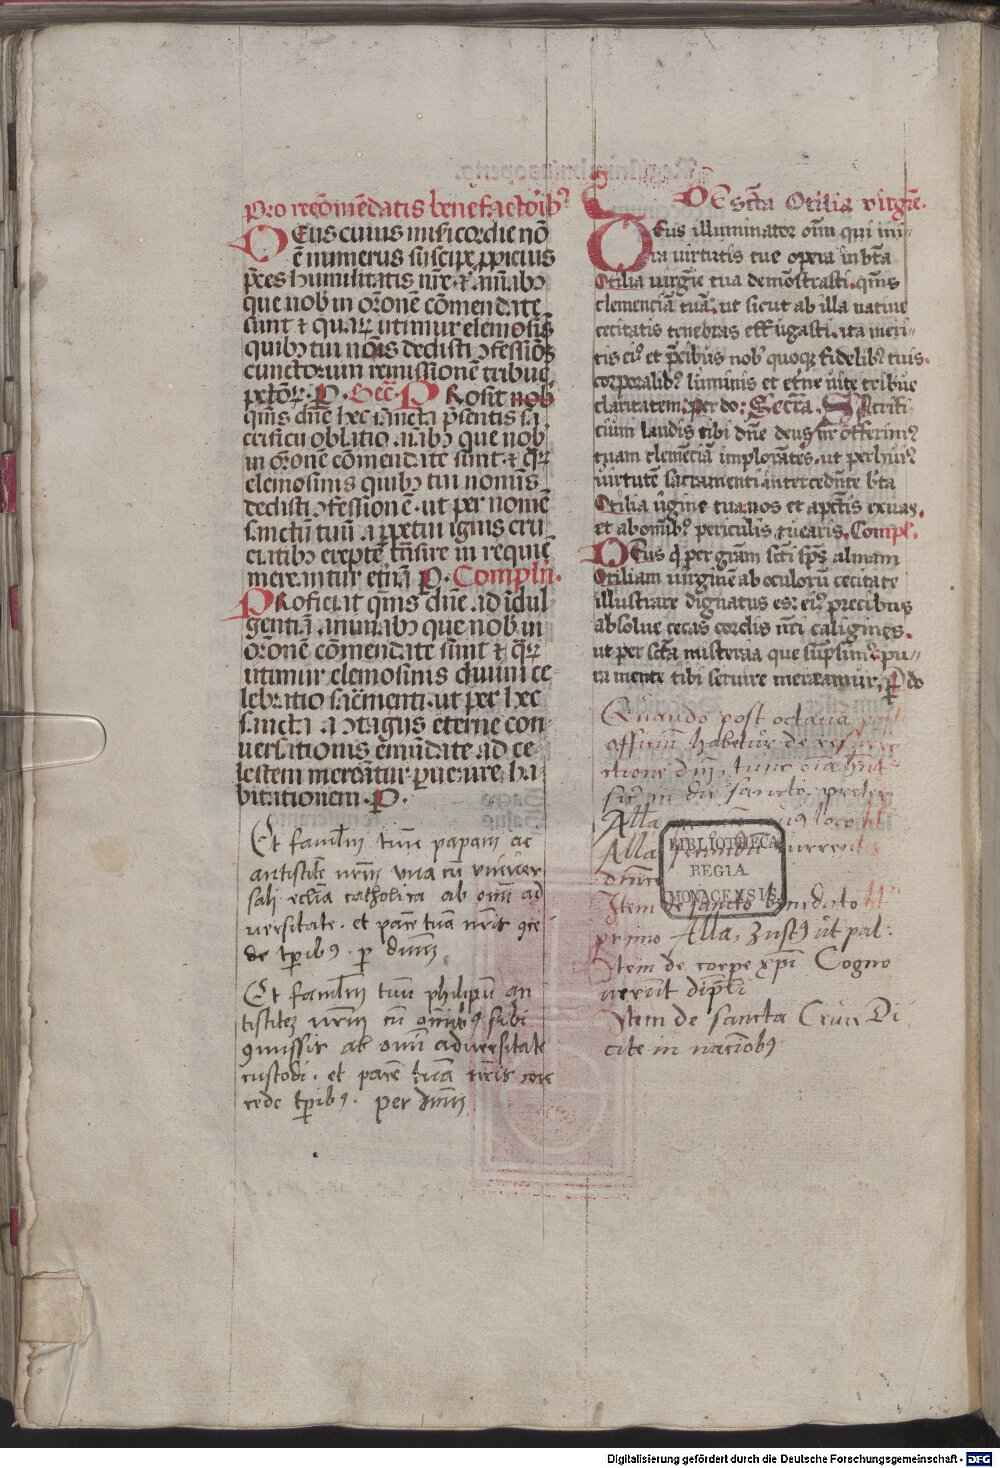 Pro recōmēdatis benefactoribꝰ
DEus cuius misericordie nō
ē numerus suscipe propicius
p̄ces humilitatis nr̄e ⁊ aīabꝫ
que nob in orōnē cōmendate
sunt ⁊ quaꝝ utimur elemosis
quibꝫ tui noīs dedisti ꝯfessiōꝫ
cunctorum remissionē tribue
pctōꝝ. P. Secr̄. PRosit nob
qm̄s dn̄e hec sancta p̄sentis sa
crificii oblatio aīabꝫ que nob
in orōnē cōmendate sunt ⁊ qr̄ꝝ
elemosinis quibꝫ tui nominis
dedisti ꝯfessionē. ut per nomē
sanctū tuū a ꝑpetui ignis cru
ciatibꝫ erepte trāsire in requiē
mereantur etnā P. Complñ.
PRoficiat qm̄s dn̄e ad idul
gentiā animabꝫ que nob in
orōnē cōmendate sunt ⁊ qr̄ꝝ
utimur elemosinis diuini ce
lebratio sacm̄enti. ut per hec
sancta a ꝯtagiis eterne con
uersationis emūdate ad ce
lestem mereātur puenire ha
bitationem. P.
Et famulm̄ tuū papam ac
antistitē nrm̄ una cū univer
sali eccliā catholica ab omī ad
versitate. et pacē tuā nr̄is ꝯce
de tꝑibꝰ. ꝑ dnm̄
Et famulm̄ tuū philipū an
tistitē nrm̄ cū omnibꝰ sibi
ꝯmissis ab omī adversitate
custodi. et pacē tuā nr̄is con
cede tꝑibꝰ. per dnm̄
DE sct̄a Otilia virgīe.
DEus illuminator oīm qui mi
ra uirtutis tue opera in bt̄a
Otilia uirgīe tua demōstrasti. qm̄s
clemenciā tuā. ut sicut ab illa natiue
cecitatis tenebras effugasti. ita meri
tis eiꝰ et p̄cibus nobˢ quoqꝫ fidelibꝰ tuis.
corporalibꝰ luminis et etne uite tribue
claritatem. per do: Secr̄ta. SAcrifi
cium laudis tibi dn̄e deus nr̄ offerimꝰ
tuam clemēciā implorātes. ut per huiꝰ
uirtutē sacramenti intercedn̄te bt̄a
Otilia ūgine tua nos et a pctīs exuas.
et ab omībꝰ periculis tuearis. Compl.
DEus q̇ per grām scti spūs almam
Otiliam uirginē ab oculorū cecitate
illustrare dignatus es: eiꝰ precibus
absolue cecas cordis nr̄i caligines.
ut per sctā misteria que sūplimꝰ. pu
ra mente tibi seruire mereamur. P do
Quando post octava
officiū habetur de resurre
ctione dnī tunc oīa sunt
sic in die sancto preter
Alla
Alla secundū currentē
dnīce
Item de sancto benedicto
primo Alla, Justꝰ ut pal:
Item de corpe xp̄i Cogno
uerūt dipli
Item de sancta Cruce Di
cite in nacionibꝰ
BIBLIOTHECA
REGIA
MONACENSIS
Digitalisierung gefördert durch die Deutsche Forschungsgemeinschaft - DFG